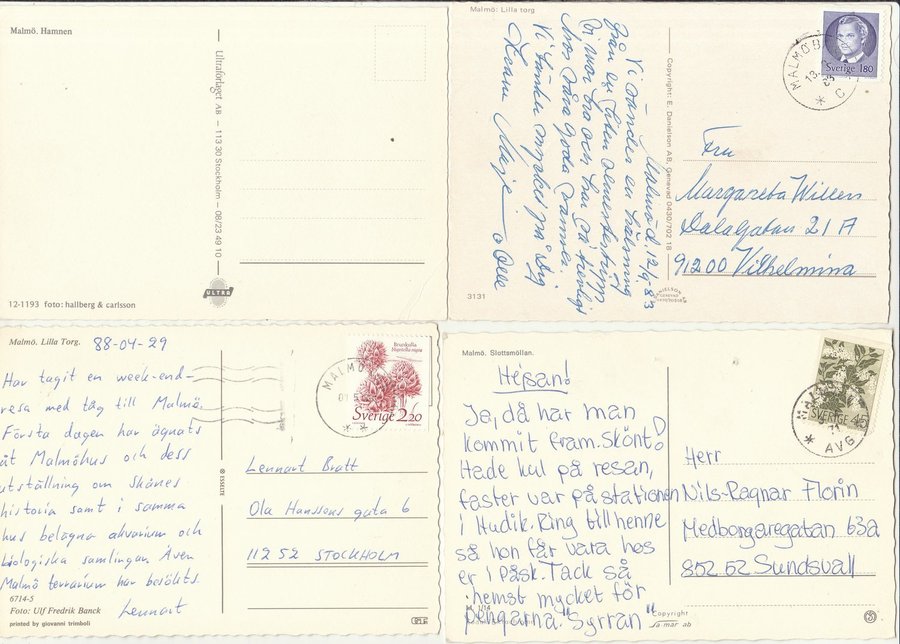 Malmö. Hamnen
Ultraförlaget AB — 113 30 Stockholm — 08/23 49 10
ULTRA
12-1193 foto: hallberg & carlsson
Malmö: Lilla torg
Malmö d. 12/9-83
Vi sänder en hälsning
från en liten semestertripp
Vi mår bra och har så trevligt
hos våra goda vänner.
Vi tänker mycket på Dig
Kram Maje o Olle
Copyright: E. Danielson AB, Genevad 0430/702 18
MALMÖ
13
83
C
Sverige 180
Fru
Margareta Willén
Dalagatan 21 A
91200 Vilhelmina
3131
DANIELSON
GENEVAD
Malmö. Lilla Torg.
88-04-29
Har tagit en week-end-
resa med tåg till Malmö.
Första dagen har ägnats
åt Malmöhus och dess
utställning om skånes
historia samt i samma
hus belägna akvarium och
biologiska samlingan. Även
Malmö terrarium har besökts.
Lennart
6714-5
Foto: Ulf Fredrik Banck
printed by giovanni trimboli
ESSELTE
MALMÖ
Brunkulla
Nigritella nigra
Sverige 2.20
Lennart Bratt
Ola Hanssons gata 6
112 52 STOCKHOLM
Malmö. Slottsmöllan.
Hejsan!
Ja, då har man
kommit fram. Skönt!
Hade kul på resan,
faster var på stationen
i Hudik. Ring till henne
så hon får vara hos
er i påsk. Tack så
hemst mycket för
pengarna. "Syrran"
M 1/14
Copyright
sa-mar ab
MALMÖ
71
AVG
SVERIGE 45
Herr
Nils-Ragnar Florin
Medborgaregatan 63a
852 52 Sundsvall